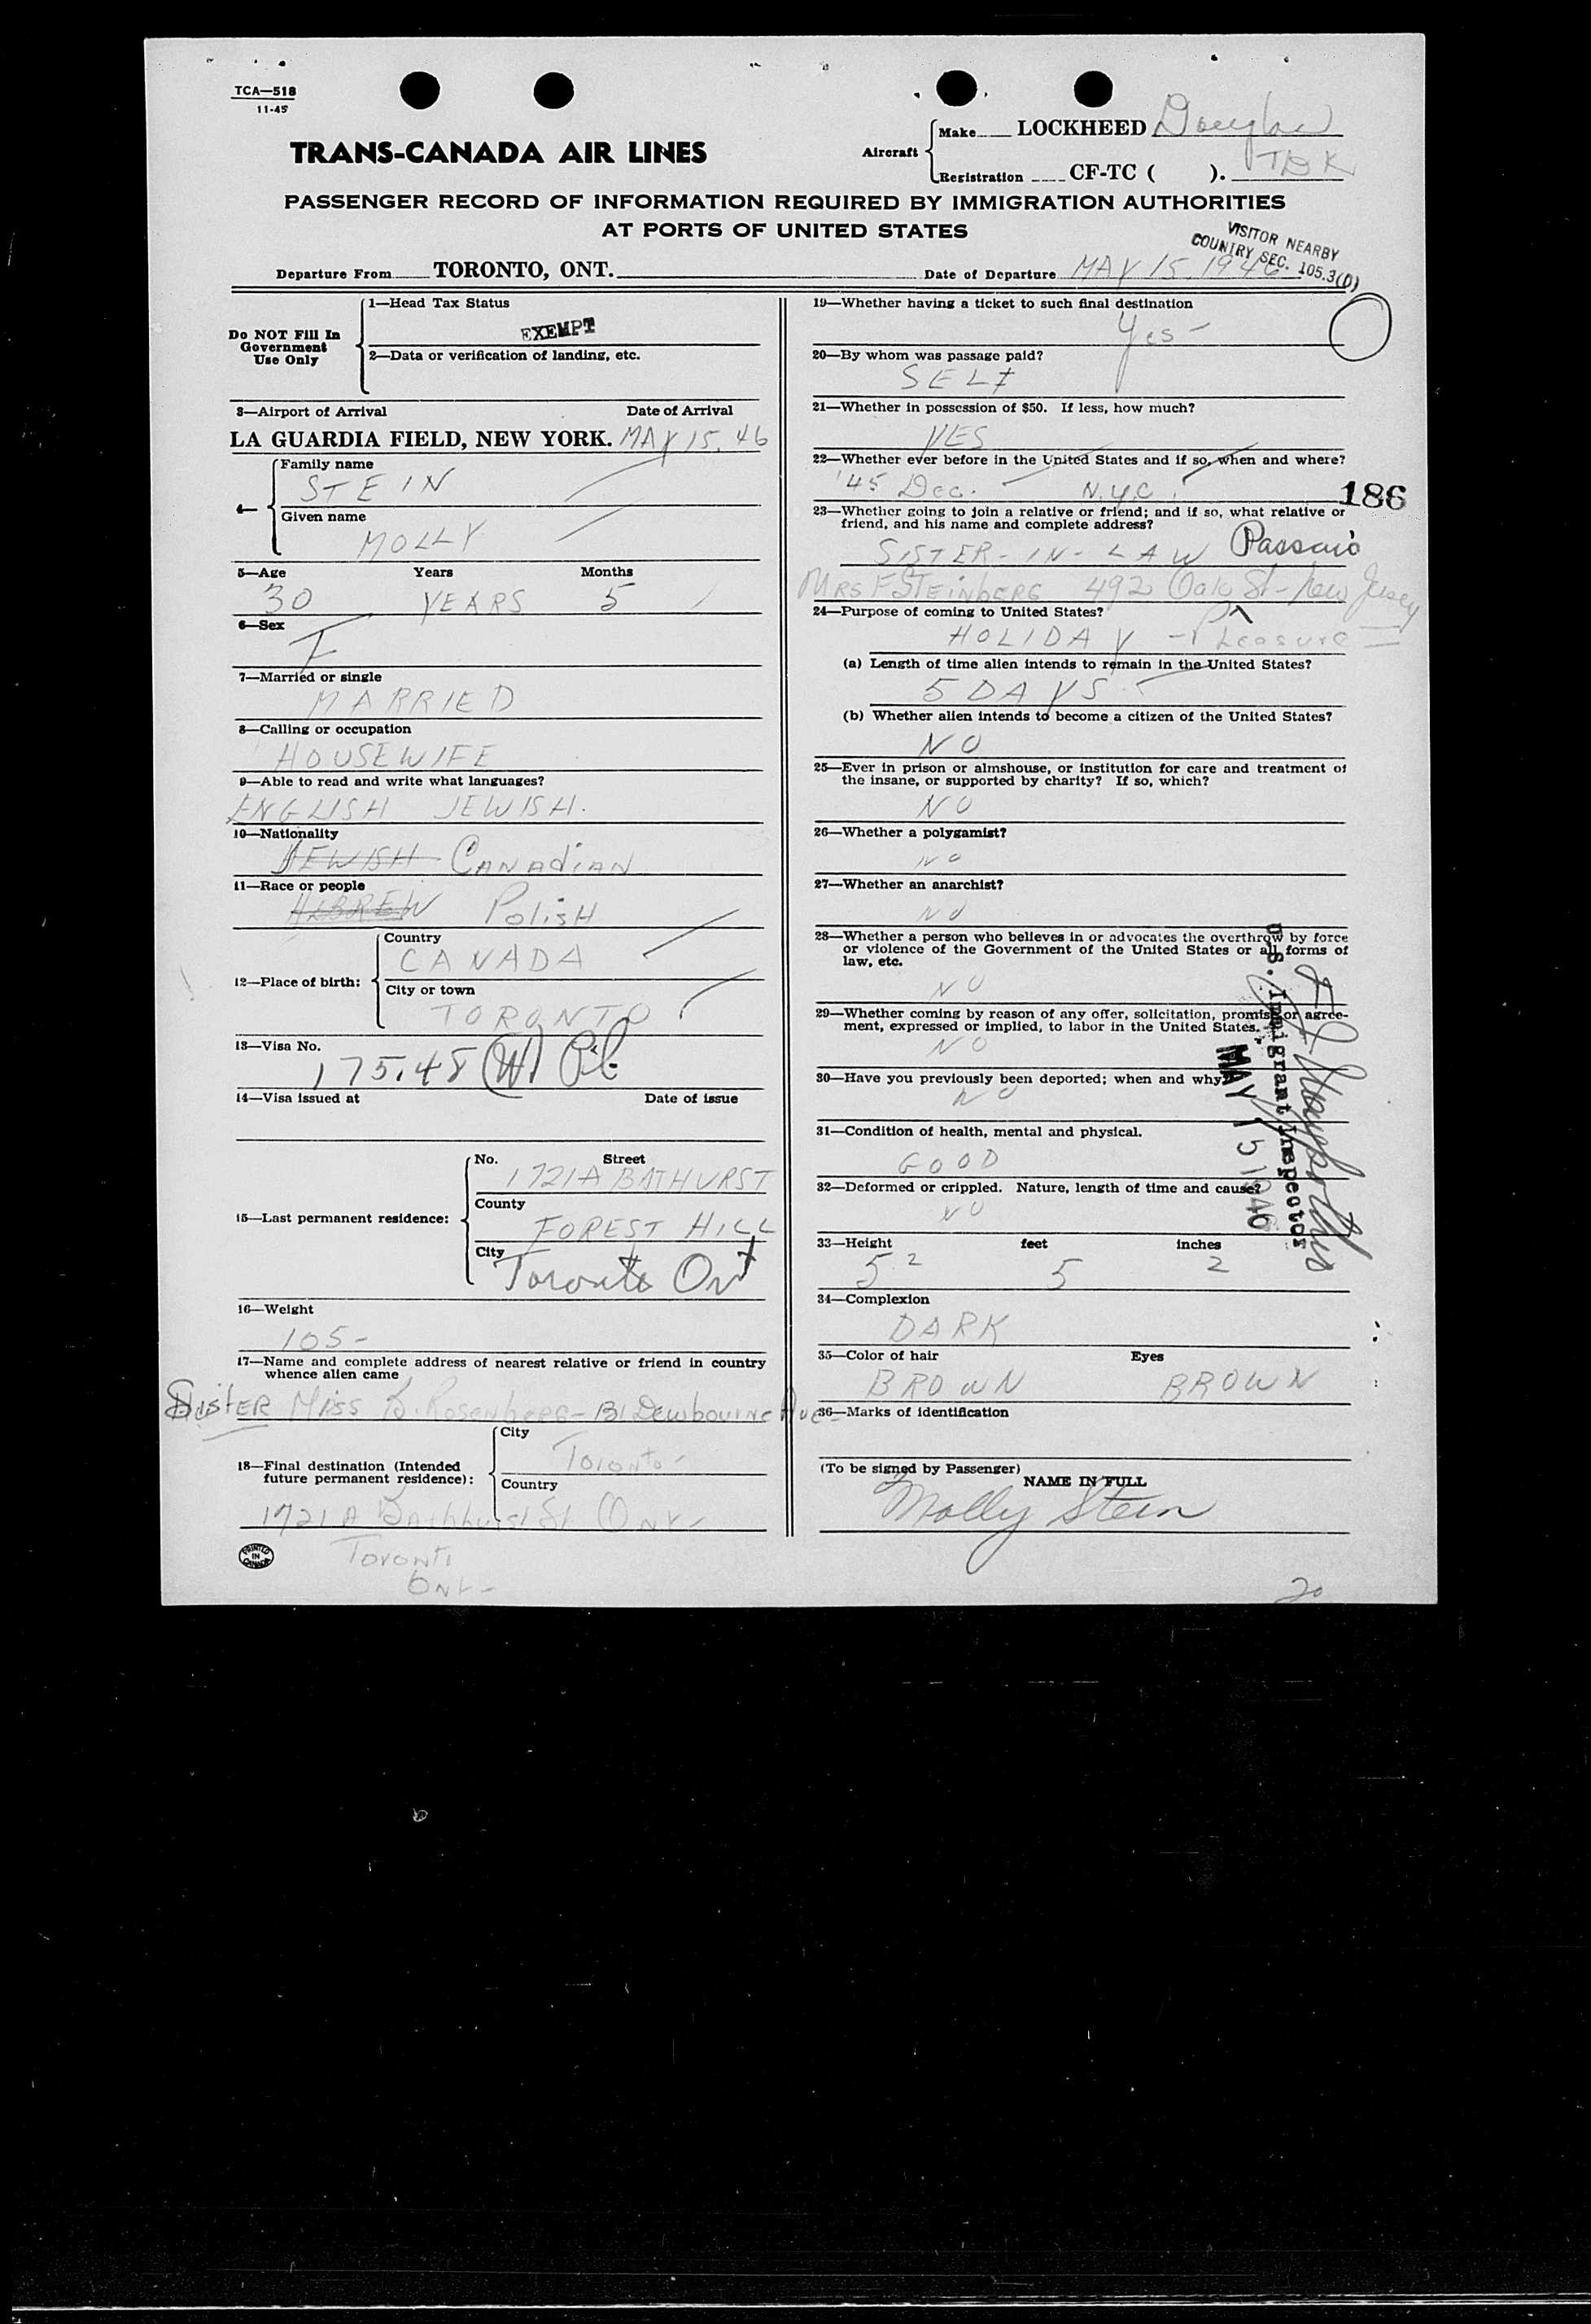 TCA—518
11-45
TRANS-CANADA AIR LINES
Aircraft
Make LOCKHEED Douglas
Registration CF-TC ( ). TDK
PASSENGER RECORD OF INFORMATION REQUIRED BY IMMIGRATION AUTHORITIES
AT PORTS OF UNITED STATES
VISITOR NEARBY
COUNTRY SEC. 105.3(D)
Departure From TORONTO, ONT. Date of Departure MAY 15, 1946
Do NOT Fill In
Government
Use Only
1—Head Tax Status
EXEMPT
2—Data or verification of landing, etc.
3—Airport of Arrival Date of Arrival
LA GUARDIA FIELD, NEW YORK. MAY 15, 46
4—
Family name
STEIN
Given name
MOLLY
5—Age Years Months
30 YEARS 5
6—Sex
F
7—Married or single
MARRIED
8—Calling or occupation
HOUSEWIFE
9—Able to read and write what languages?
ENGLISH JEWISH.
10—Nationality
JEWISH CANADIAN
11—Race or people
HEBREW POLISH
12—Place of birth:
Country
CANADA
City or town
TORONTO
13—Visa No.
175.48
14—Visa issued at Date of issue
15—Last permanent residence:
No. Street
1721A BATHURST
County
FOREST HILL
City
Toronto Ont
16—Weight
105-
17—Name and complete address of nearest relative or friend in country
whence alien came
SISTER Miss Rosenberg - Dewbourne Ave-
18—Final destination (Intended
future permanent residence):
City
Toronto -
Country
1721 A Bathhurst St Ont-
Toronto
Ont-
PRINTED
IN
CANADA
19—Whether having a ticket to such final destination
Yes -
20—By whom was passage paid?
SELF
21—Whether in possession of $50. If less, how much?
YES
22—Whether ever before in the United States and if so, when and where?
'45 Dec. N.Y.C.
186
23—Whether going to join a relative or friend; and if so, what relative or
friend, and his name and complete address?
SISTER-IN-LAW Passaic
MRS F STEINBERG 492 Oak St - New Jersey
24—Purpose of coming to United States?
HOLIDAY - Pleasure
(a) Length of time alien intends to remain in the United States?
5 DAYS
(b) Whether alien intends to become a citizen of the United States?
NO
25—Ever in prison or almshouse, or institution for care and treatment of
the insane, or supported by charity? If so, which?
NO
26—Whether a polygamist?
NO
27—Whether an anarchist?
NO
28—Whether a person who believes in or advocates the overthrow by force
or violence of the Government of the United States or all forms of
law, etc.
NO
29—Whether coming by reason of any offer, solicitation, promise or agree-
ment, expressed or implied, to labor in the United States.
NO
30—Have you previously been deported; when and why?
NO
31—Condition of health, mental and physical.
GOOD
32—Deformed or crippled. Nature, length of time and cause?
NO
MAY 15 1946
U.S. Immigrant Inspector
33—Height feet inches
5 2 5 2
34—Complexion
DARK
35—Color of hair Eyes
BROWN BROWN
36—Marks of identification
(To be signed by Passenger)
NAME IN FULL
Molly Stein
20